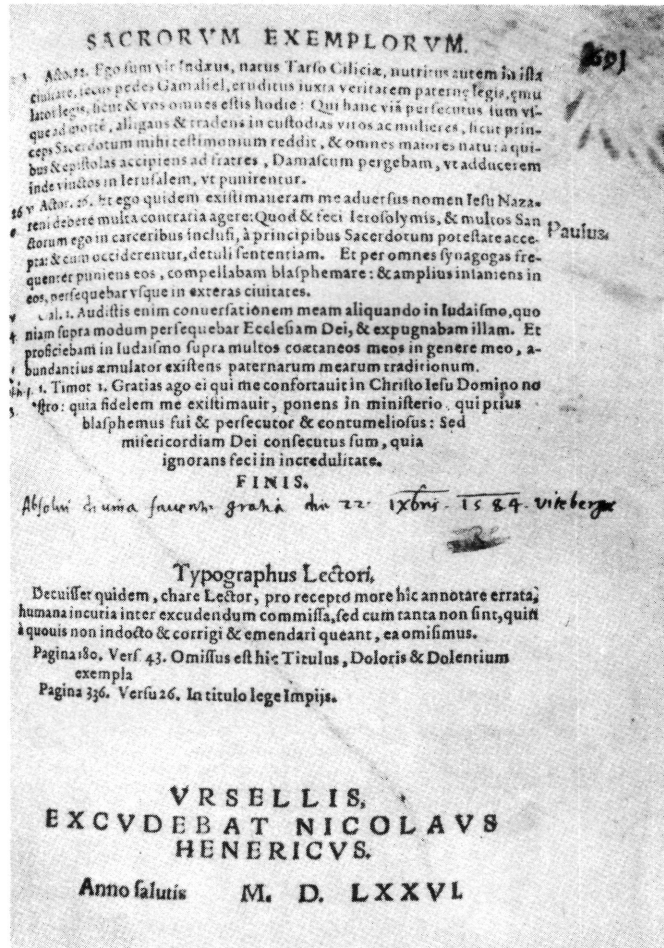 SACRORVM EXEMPLORVM.
691
Acto. 22. Ego sum vir Iudæus, natus Tarso Ciliciæ, nutritus autem in ista
ciuitate, secus pedes Gamaliel, eruditus iuxta veritatem paternę legis, ęmu
lator legis, sicut & vos omnes estis hodie: Qui hanc viā persecutus sum vs-
que ad mortē, alligans & tradens in custodias viros ac mulieres, sicut prin-
ceps Sacerdotum mihi testimonium reddit, & omnes maiores natu: a qui-
bus & epistolas accipiens ad fratres, Damascum pergebam, vt adducerem
inde vinctos in Ierusalem, vt punirentur.
26 v Actor. 26. Et ego quidem existimaueram me aduersus nomen Iesu Naza-
reni debere multa contraria agere: Quod & feci Ierosolymis, & multos San
ctorum ego in carceribus inclusi, à principibus Sacerdotum potestate acce-
Paulus.
pta: & cum occiderentur, detuli sententiam. Et per omnes synagogas fre-
quenter puniens eos, compellabam blasphemare: & amplius insaniens in
eos, persequebar vsque in exteras ciuitates.
Gal. 1. Audistis enim conuersationem meam aliquando in Iudaismo, quo
niam supra modum persequebar Ecclesiam Dei, & expugnabam illam. Et
proficiebam in Iudaismo supra multos coætaneos meos in genere meo, a-
bundantius æmulator existens paternarum mearum traditionum.
1. Timot 1. Gratias ago ei qui me confortauit in Christo Iesu Domino no
stro: quia fidelem me existimauit, ponens in ministerio qui prius
blasphemus fui & persecutor & contumeliosus: Sed
misericordiam Dei consecutus sum, quia
ignorans feci in incredulitate.
FINIS.
Absolui diuina fauente gratia die 22 IXbris 1584 Vitebergæ
Typographus Lectori.
Decuisset quidem, chare Lector, pro recepto more hic annotare errata,
humana incuria inter excudendum commissa, sed cum tanta non sint, quin
à quouis non indocto & corrigi & emendari queant, ea omisimus.
Pagina 180. Vers 43. Omissus est hic Titulus, Doloris & Dolentium
exempla
Pagina 336. Versu 26. In titulo lege Impijs.
VRSELLIS,
EXCVDEBAT NICOLAVS
HENERICVS.
Anno salutis M. D. LXXVI.